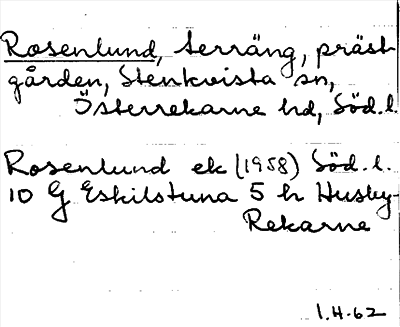 Rosenlund, terräng, präst-
gården, Stenkvista sn,
Österrekarne hd, Söd. l.
Rosenlund ek (1958) Söd. l.
10 G Eskilstuna 5 h Husby-
Rekarne
1.H.62